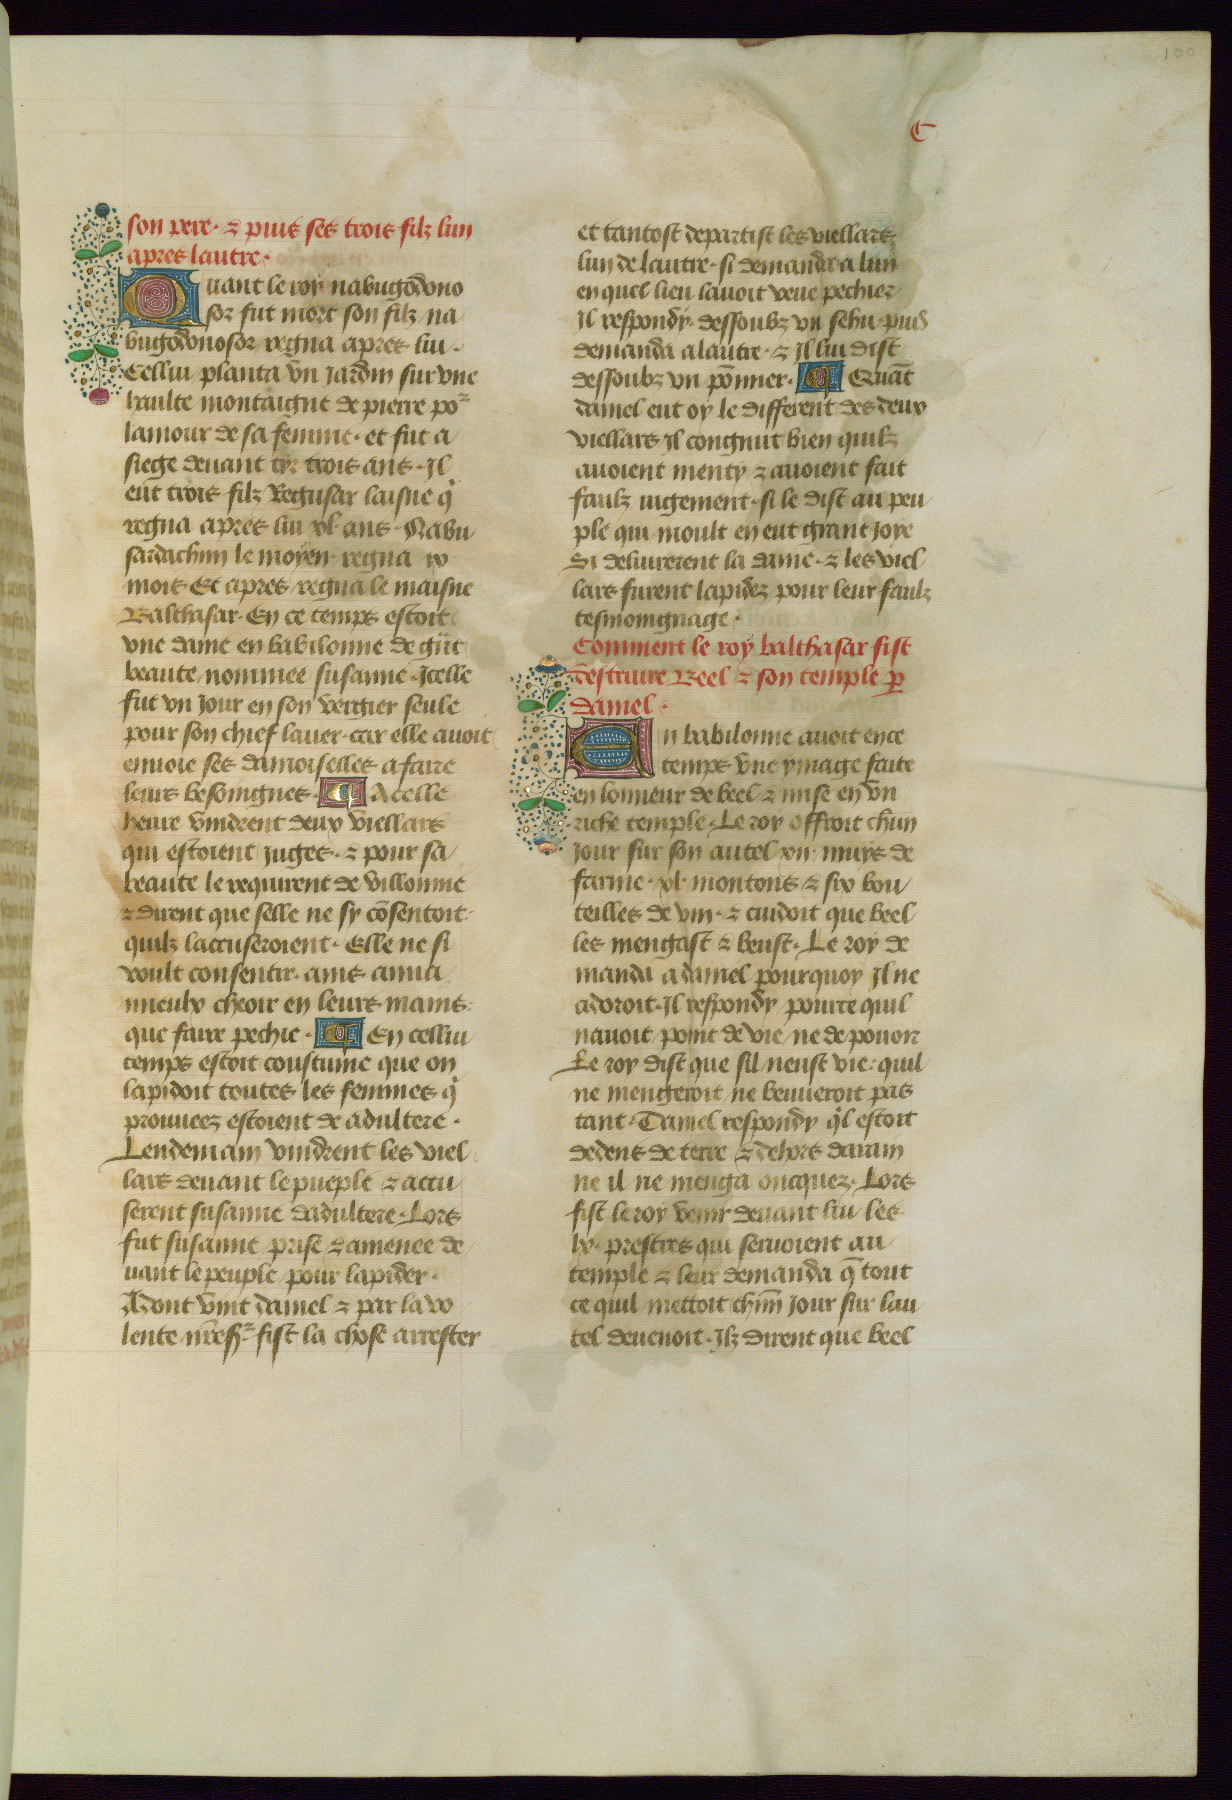 100
C
son pere · & puis ses trois filz lun
apres lautre ·
Quant le roy nabugodono
sor fut mort son filz na
bugodonosor regna apres lui ·
Cellui planta vn Jardin sur vne
haulte montaigne de pierre poᷣ
lamour de sa femme · et fut a
siege deuant tyr trois ans · Il
eut trois filz Regusar laisne q̇
regna apres lui xl ans · Nabu
sardachim le moyen regna ix
mois Et apres regna le maisne
Balthasar · En ce temps estoit
vne dame en babilonne de gñt
beaute nommee susanne · Icelle
fut vn Jour en son vergier seule
pour son chief lauer · car elle auoit
enuoie ses damoiselles a faire
leurs besoingnes · A celle
heure vindrent deux viellars
qui estoient Juges · & pour sa
beaute le requirent de villonnie
& dirent que selle ne sy cõsentoit
quilz laccuseroient · Elle ne si
voult consentir · ains ama
mieulx cheoir en leurs mains ·
que faire pechie · En cellui
temps estoit coustume que on
lapidoit toutes les femmes q̇
prouuees estoient de adultere ·
Lendemain vindrent les viel
lars deuant le pueple & accu
serent susanne dadultere · Lors
fut susanne prise & amenee de
uant le peuple pour lapider ·
Adont vint daniel & par la vo
lente nr̃e sʳ fist la chose arrester
et tantost departist les viellars
lun de lautre · si demanda a lun
en quel lieu lauoit veue pechier
Il respondy · dessoubz vn sehu · puis
demanda a lautre · & Il lui dist
dessoubz vn põmier · Quãt
daniel eut oy le different des deux
viellars Il congnut bien quilz
auoient menty & auoient fait
faulz iugement · si le dist au peu
ple qui moult en eut grant Joye
Si deliurerent la dame · & les viel
lars furent lapidez pour leur faulz
tesmoingnage ·
Comment le roy balthasar fist
destruire Beel & son temple ꝑ
daniel ·
En babilonne auoit en ce
temps vne ymage faite
en lonneur de beel & mise en vn
riche temple · Le roy offroit chũn
Jour sur son autel xii muys de
farine · xl · moutons & six bou
teilles de vin · & cuidoit que beel
les mengast & beust · Le roy de
manda a daniel pourquoy Il ne
adoroit · Il respondy pource quil
nauoit point de vie ne de pouoir
Le roy dist que sil neust vie · quil
ne mengeroit ne beuueroit pas
tant · Daniel respondy q̇l estoit
dedens de terre & dehors darain
ne il ne menga oncquez · Lors
fist le roy venir deuant lui les
lx · prestres qui seruoient au
temple & leur demanda q̃ tout
ce quil mettoit chũn Jour sur lau
tel deuenoit · Ilz dirent que beel